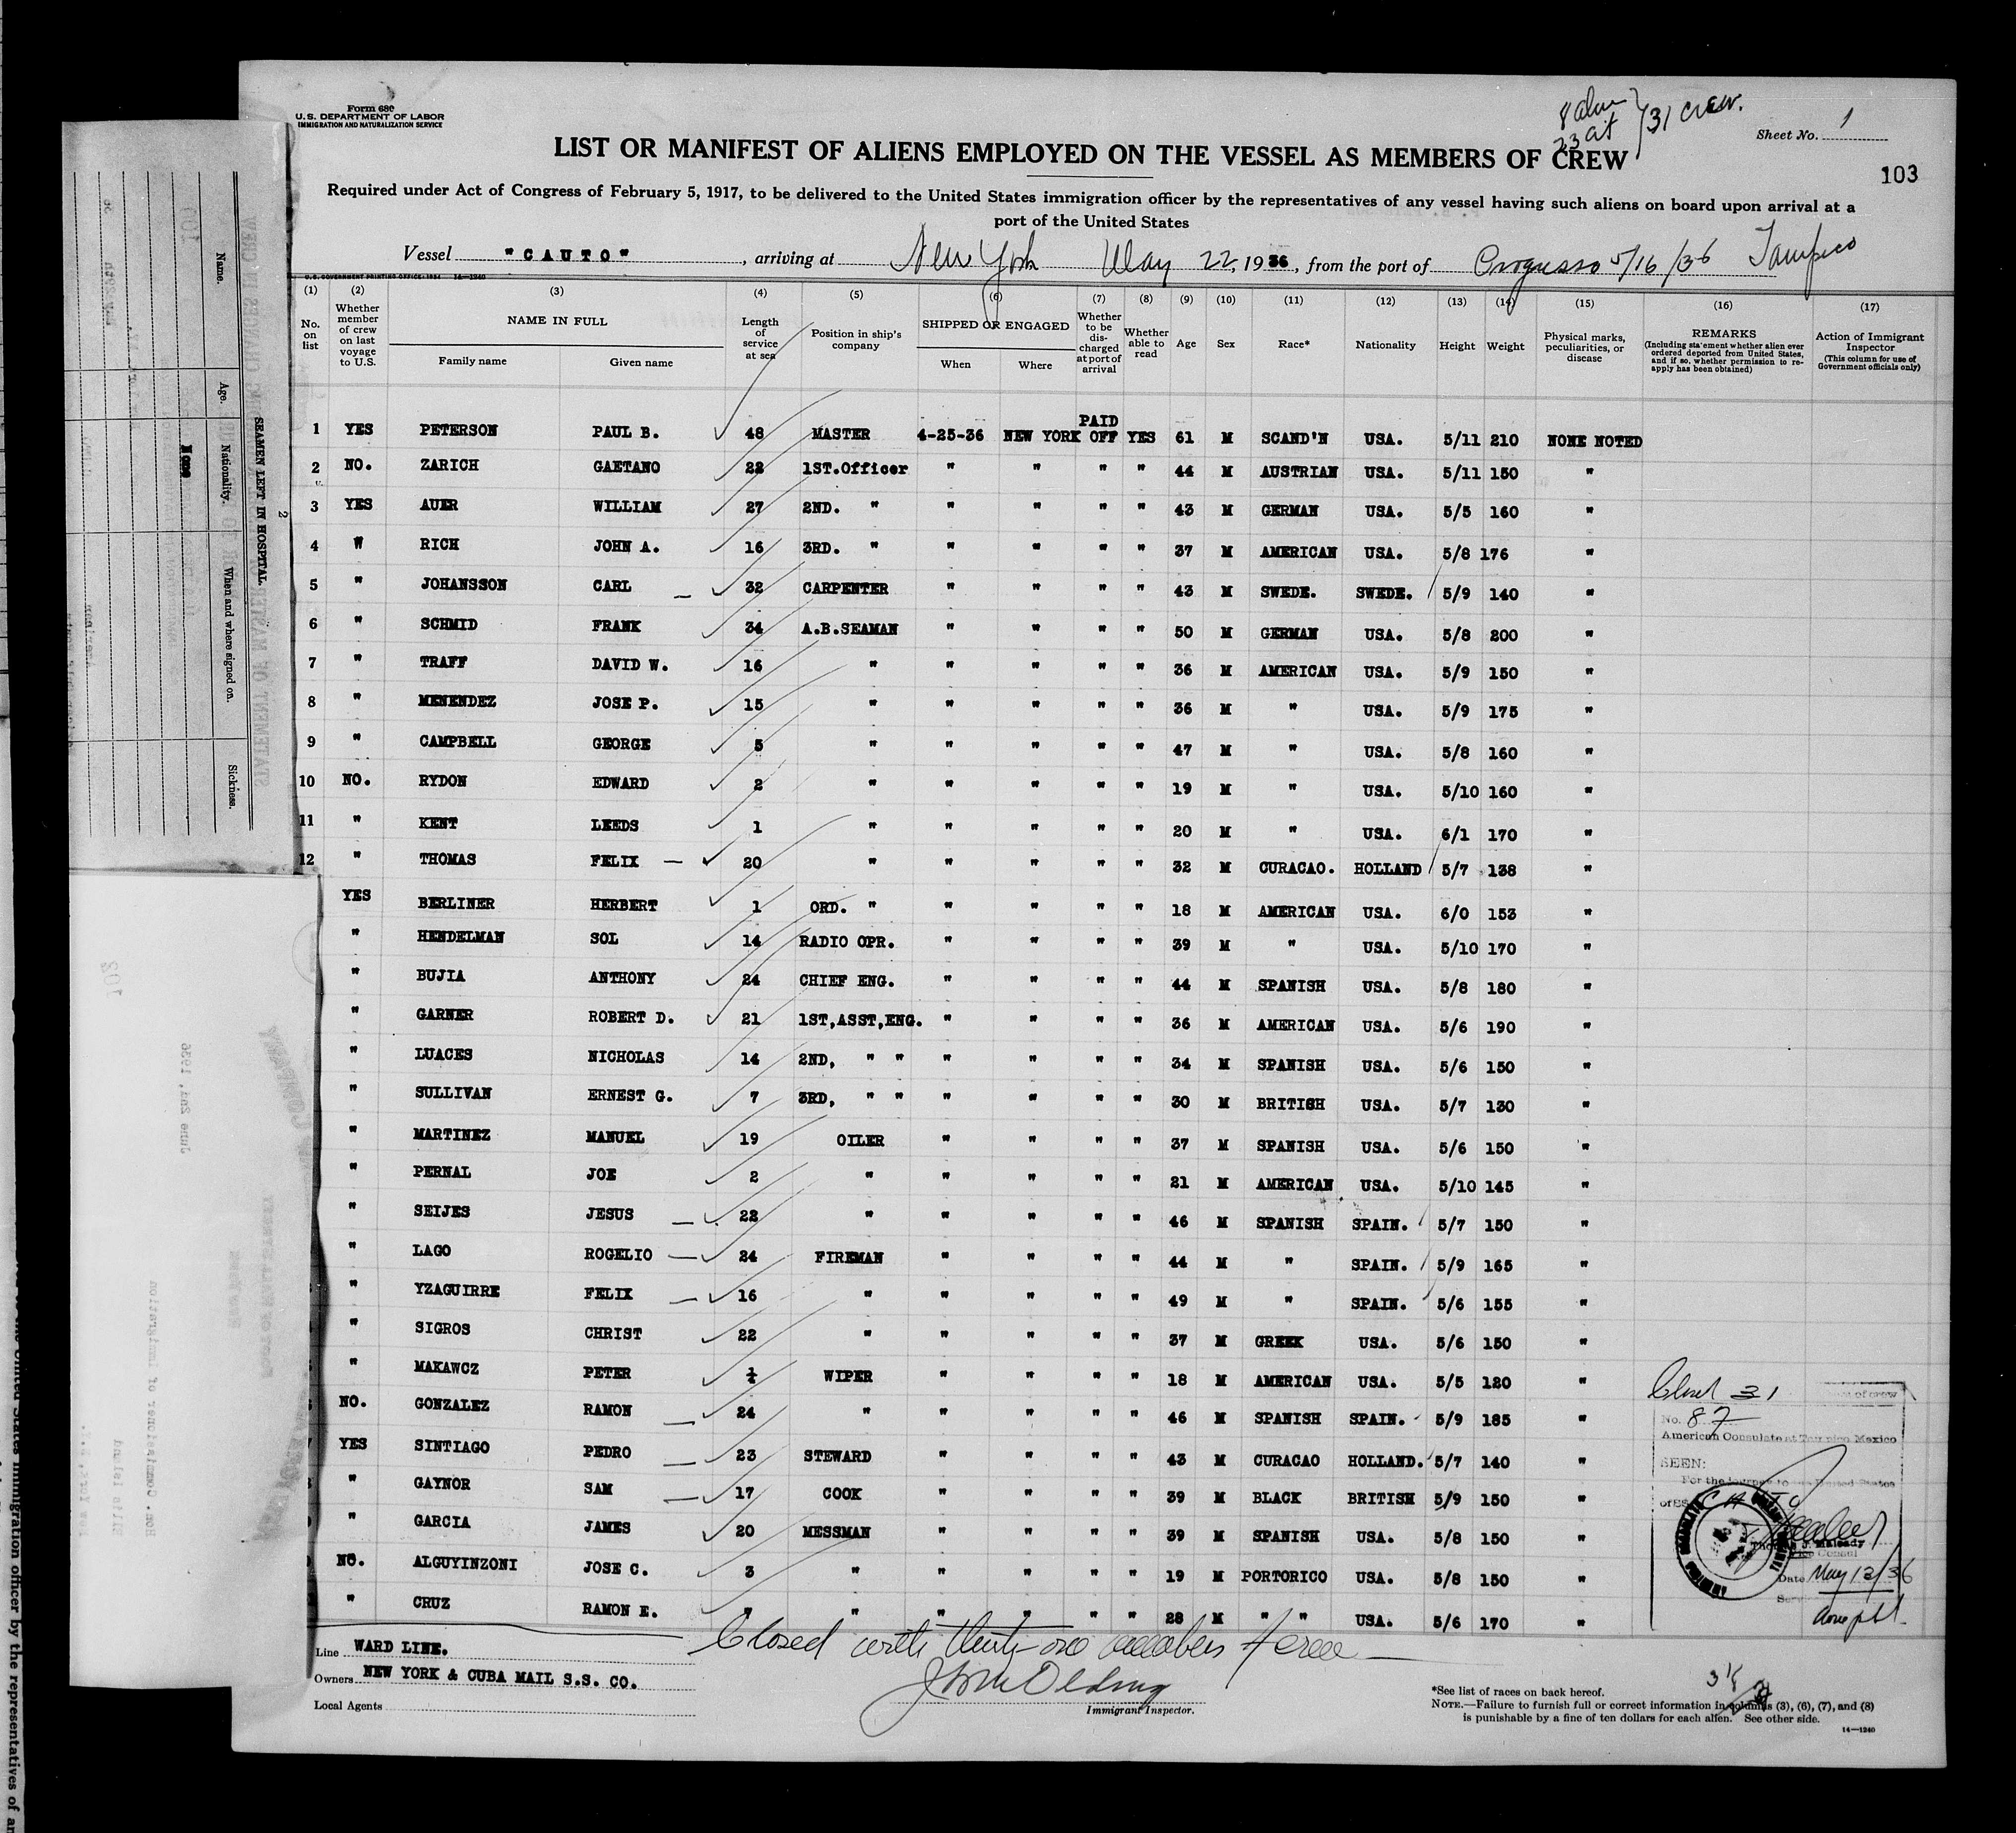 Form 680
U.S. DEPARTMENT OF LABOR
IMMIGRATION AND NATURALIZATION SERVICE
23 at } 31 crew.
Sheet No. 1
LIST OR MANIFEST OF ALIENS EMPLOYED ON THE VESSEL AS MEMBERS OF CREW
103
Required under Act of Congress of February 5, 1917, to be delivered to the United States immigration officer by the representatives of any vessel having such aliens on board upon arrival at a
port of the United States
Vessel "CAUTO", arriving at New York May 22, 1936, from the port of Progresso 5/16/36 Tampico
U.S. GOVERNMENT PRINTING OFFICE: 1934 14—1240
(1) (2) (3) (4) (5) (6) (7) (8) (9) (10) (11) (12) (13) (14) (15) (16) (17)
No. on list
Whether member of crew on last voyage to U.S.
NAME IN FULL
Family name
Given name
Length of service at sea
Position in ship's company
SHIPPED OR ENGAGED
When
Where
Whether to be discharged at port of arrival
Whether able to read
Age
Sex
Race*
Nationality
Height
Weight
Physical marks, peculiarities, or disease
REMARKS
(Including statement whether alien ever ordered deported from United States, and if so, whether permission to reapply has been obtained)
Action of Immigrant Inspector
(This column for use of Government officials only)
1 YES PETERSON PAUL B. 48 MASTER 4-25-36 NEW YORK PAID OFF YES 61 M SCAND'N USA. 5/11 210 NONE NOTED
2 NO. ZARICH GAETANO 22 1ST.Officer " " " " 44 M AUSTRIAN USA. 5/11 150 "
3 YES AUER WILLIAM 27 2ND. " " " " " 43 M GERMAN USA. 5/5 160 "
4 " RICH JOHN A. 16 3RD. " " " " " 37 M AMERICAN USA. 5/8 176 "
5 " JOHANSSON CARL 32 CARPENTER " " " " 43 M SWEDE. SWEDE. 5/9 140 "
6 " SCHMID FRANK 34 A.B.SEAMAN " " " " 50 M GERMAN USA. 5/8 200 "
7 " TRAFF DAVID W. 16 " " " " " 36 M AMERICAN USA. 5/9 150 "
8 " MENENDEZ JOSE P. 15 " " " " " 36 M " USA. 5/9 175 "
9 " CAMPBELL GEORGE 5 " " " " " 47 M " USA. 5/8 160 "
10 NO. RYDON EDWARD 2 " " " " " 19 M " USA. 5/10 160 "
11 " KENT LEEDS 1 " " " " " 20 M " USA. 6/1 170 "
12 " THOMAS FELIX 20 " " " " " 32 M CURACAO. HOLLAND 5/7 138 "
YES BERLINER HERBERT 1 ORD. " " " " " 18 M AMERICAN USA. 6/0 153 "
" HENDELMAN SOL 14 RADIO OPR. " " " " 39 M " USA. 5/10 170 "
" BUJIA ANTHONY 24 CHIEF ENG. " " " " 44 M SPANISH USA. 5/8 180 "
" GARNER ROBERT D. 21 1ST,ASST,ENG. " " " " 36 M AMERICAN USA. 5/6 190 "
" LUACES NICHOLAS 14 2ND, " " " " " " 34 M SPANISH USA. 5/6 150 "
" SULLIVAN ERNEST G. 7 3RD, " " " " " " 30 M BRITISH USA. 5/7 130 "
" MARTINEZ MANUEL 19 OILER " " " " 37 M SPANISH USA. 5/6 150 "
" PERNAL JOE 2 " " " " " 21 M AMERICAN USA. 5/10 145 "
" SEIJES JESUS 22 " " " " " 46 M SPANISH SPAIN. 5/7 150 "
" LAGO ROGELIO 24 FIREMAN " " " " 44 M " SPAIN. 5/9 165 "
" YZAGUIRRE FELIX 16 " " " " " 49 M " SPAIN. 5/6 155 "
" SIGROS CHRIST 22 " " " " " 37 M GREEK USA. 5/6 150 "
" MAKAWCZ PETER WIPER " " " " 18 M AMERICAN USA. 5/5 120 "
NO. GONZALEZ RAMON 24 " " " " " 46 M SPANISH SPAIN. 5/9 185 "
YES SINTIAGO PEDRO 23 STEWARD " " " " 43 M CURACAO HOLLAND. 5/7 140 "
" GAYNOR SAM 17 COOK " " " " 39 M BLACK BRITISH 5/9 150 "
" GARCIA JAMES 20 MESSMAN " " " " 39 M SPANISH USA. 5/8 150 "
NO. ALGUYINZONI JOSE C. 3 " " " " " 19 M PORTORICO USA. 5/8 150 "
" CRUZ RAMON E. " " " " " " 28 M " " USA. 5/6 170 "
Closed 31
No. 87
American Consulate at Tampico Mexico
SEEN:
For the journey to the United States
Thomas J. Maleady
Vice Consul
Date May 13/36
Closed with thirty-one members of crew
Line WARD LINE.
Owners NEW YORK & CUBA MAIL S.S. CO.
Local Agents
Immigrant Inspector.
*See list of races on back hereof.
NOTE.—Failure to furnish full or correct information in columns (3), (6), (7), and (8)
is punishable by a fine of ten dollars for each alien. See other side.
14—1240
SEAMEN LEFT IN HOSPITAL.
2
Name.
Age.
Nationality.
When and where signed on.
Sickness.
None
STATEMENT OF MASTER
June 2nd, 1936
Hon. Commissioner of Immigration
Ellis Island